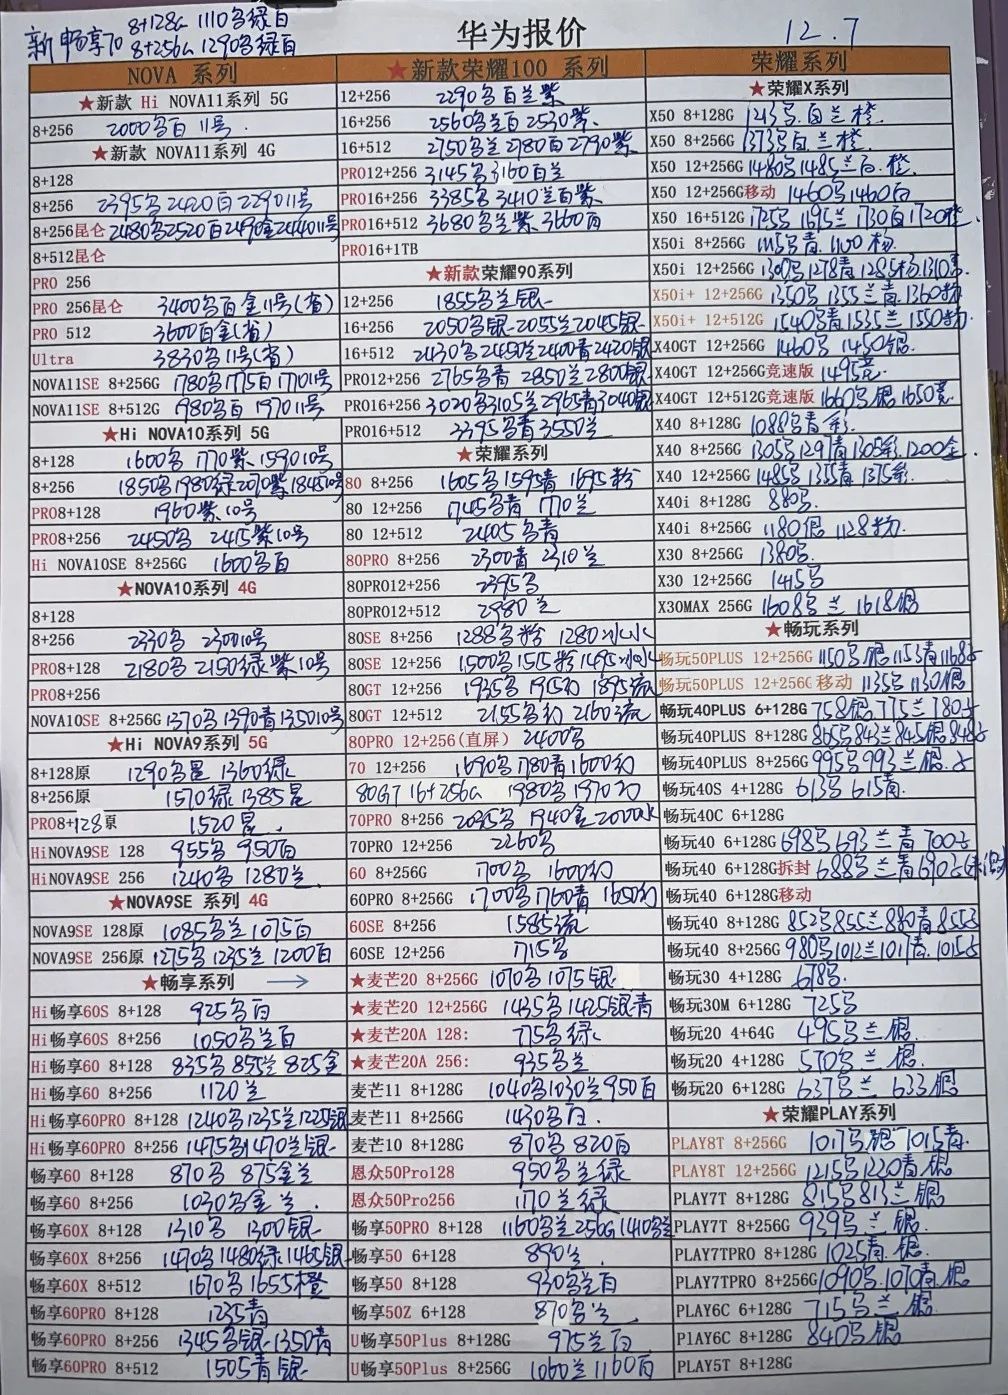 新畅享70 8+128G 1110多绿白
8+256G 1290多绿白
华为报价
12.7
NOVA 系列
★新款 Hi NOVA11系列 5G
8+256 2000多白 11号
★新款 NOVA11系列 4G
8+128
8+256 2395多 2420白 2290 11号
8+256昆仑 2480多 2520白 2490金 2440 11号
8+512昆仑
PRO 256
PRO 256昆仑 3400多白金 11号(省)
PRO 512 3600白金(省)
Ultra 3830多 11号(省)
NOVA11SE 8+256G 1780多 1775白 1770 11号
NOVA11SE 8+512G 1980多白 1970 11号
★Hi NOVA10系列 5G
8+128 1600多 1770紫 1590 10号
8+256 1850多 1980绿 2070紫 1845 10号
PRO8+128 1960紫 10号
PRO8+256 2450多 2415紫 10号
Hi NOVA10SE 8+256G 1600多白
★NOVA10系列 4G
8+128
8+256 2330多 2300 10号
PRO8+128 2180多 2150绿紫 10号
PRO8+256
NOVA10SE 8+256G 1370多 1390青 1350 10号
★Hi NOVA9系列 5G
8+128原 1290多星 1360绿
8+256原 1570绿 1385星
PRO8+128原 1520星
HiNOVA9SE 128 955多 950白
HiNOVA9SE 256 1240多 1280兰
★NOVA9SE 系列 4G
NOVA9SE 128原 1085多兰 1075白
NOVA9SE 256原 1275多 1235兰 1200白
★畅享系列 →
Hi畅享60S 8+128 925多白
Hi畅享60S 8+256 1050多兰白
Hi畅享60 8+128 835多 855兰 825金
Hi畅享60 8+256 1120兰
Hi畅享60PRO 8+128 1240多 1235兰 1225银
Hi畅享60PRO 8+256 1475多 1470兰银
畅享60 8+128 870多 875金兰
畅享60 8+256 1030多金兰
畅享60X 8+128 1310多 1300银
畅享60X 8+256 1470多 1480绿 1465银
畅享60X 8+512 1670多 1655橙
畅享60PRO 8+128 1235青
畅享60PRO 8+256 1345多银 1350青
畅享60PRO 8+512 1505青银
★新款荣耀100 系列
12+256 2290多白兰紫
16+256 2560多兰白 2530紫
16+512 2750多兰 2780白 2790紫
PRO12+256 3145多 3160白兰
PRO16+256 3385多 3410兰白紫
PRO16+512 3680多兰紫 3660白
PRO16+1TB
★新款荣耀90系列
12+256 1855多兰银
16+256 2050多银 2055兰 2045银
16+512 2430多 2450兰 2400青 2420银
PRO12+256 2765多青 2850兰 2800银
PRO16+256 3020多 3105兰 2965青 3040银
PRO16+512 3395多青 3550兰
★荣耀系列
80 8+256 1605多 1595青 1695粉
80 12+256 1745多青 1770兰
80 12+512 2405多青
80PRO 8+256 2300青 2310兰
80PRO12+256 2395多
80PRO12+512 2980兰
80SE 8+256 1288多粉 1280冰水
80SE 12+256 1500多 1515粉 1495冰水
80GT 12+256 1935多 1915幻 1895流
80GT 12+512 2155多幻 2160流
80PRO 12+256(直屏) 2400多
70 12+256 1690多 1780青 1600幻
80GT 16+256G 1980多 1970幻
70PRO 8+256 2035多 1940金 2000冰
70PRO 12+256 2260多
60 8+256G 1700多 1600幻
60PRO 8+256G 1700多 1760青 1650幻
60SE 8+256 1585流
60SE 12+256 1715多
★麦芒20 8+256G 1070多 1075银
★麦芒20 12+256G 1435多 1425银青
★麦芒20A 128: 775多绿
★麦芒20A 256: 935多兰
麦芒11 8+128G 1040多 1030兰 950白
麦芒11 8+256G 1430多白
麦芒10 8+128G 870多 820白
恩众50Pro128 950多兰绿
恩众50Pro256 1170兰绿
畅享50PRO 8+128 1160多兰 256G 1410多兰
畅享50 6+128 890兰
畅享50 8+128 930多兰白
畅享50Z 6+128 870多兰
U畅享50Plus 8+128G 975兰白
U畅享50Plus 8+256G 1060兰 1160白
荣耀系列
★荣耀X系列
X50 8+128G 1213多白兰橙
X50 8+256G 1373多白兰橙
X50 12+256G 1480多 1485兰白橙
X50 12+256G移动 1460多 1460白
X50 16+512G 1725多 1695兰 1730白 1720橙
X50i 8+256G 1115多青 1100粉
X50i 12+256G 1300多 1278青 1285粉 1310
X50i+ 12+256G 1350多 1355兰青 1360粉
X50i+ 12+512G 1540多青 1535兰 1550粉
X40GT 12+256G 1460多 1450银
X40GT 12+256G竞速版 1495竞
X40GT 12+512G竞速版 1660多银 1650竞
X40 8+128G 1088多青彩
X40 8+256G 1305多 1297青 1305彩 1200金
X40 12+256G 1485多 1355青 1375彩
X40i 8+128G 880多
X40i 8+256G 1180银 1128粉
X30 8+256G 1380多
X30 12+256G 1415多
X30MAX 256G 1608多兰 1618银
★畅玩系列
畅玩50PLUS 12+256G 1150多银 1153青 1168
畅玩50PLUS 12+256G 移动 1135多 1130银
畅玩40PLUS 6+128G 758银 775兰 780
畅玩40PLUS 8+128G 865多 843兰 845银
畅玩40PLUS 8+256G 995多 993兰银
畅玩40S 4+128G 613多 615青
畅玩40C 6+128G
畅玩40 6+128G 698多 693兰青 700
畅玩40 6+128G拆封 688多兰青 690
畅玩40 6+128G移动
畅玩40 8+128G 852多 855兰 880青 855
畅玩40 8+256G 980多 1012兰 1017青 1015
畅玩30 4+128G 678多
畅玩30M 6+128G 725多
畅玩20 4+64G 495多兰银
畅玩20 4+128G 570多兰银
畅玩20 6+128G 637多兰 633银
★荣耀PLAY系列
PLAY8T 8+256G 1017多银 1015青
PLAY8T 12+256G 1215多 1220青银
PLAY7T 8+128G 815多 813兰银
PLAY7T 8+256G 939多兰银
PLAY7TPRO 8+128G 1025青银
PLAY7TPRO 8+256G 1090多 1070青银
PLAY6C 6+128G 715多兰银
PlAY6C 8+128G 840多银
PLAY5T 8+128G